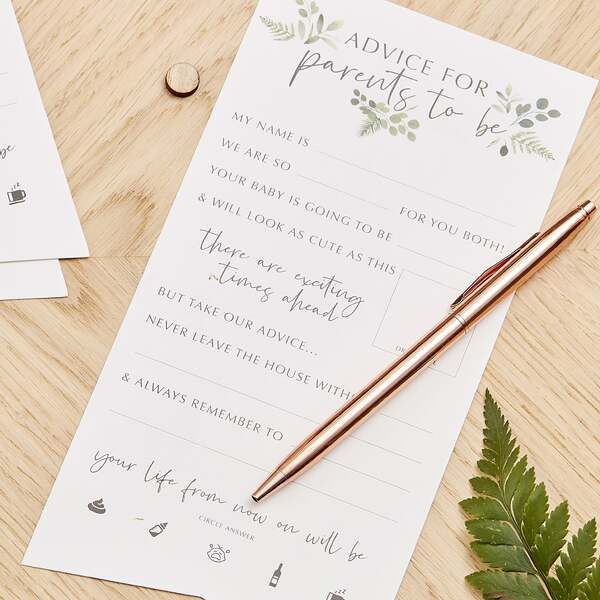 ADVICE FOR
parents to be
MY NAME IS
WE ARE SO FOR YOU BOTH!
YOUR BABY IS GOING TO BE
& WILL LOOK AS CUTE AS THIS
there are exciting
times ahead
BUT TAKE OUR ADVICE...
NEVER LEAVE THE HOUSE WITH
& ALWAYS REMEMBER TO
your life from now on will be
CIRCLE ANSWER